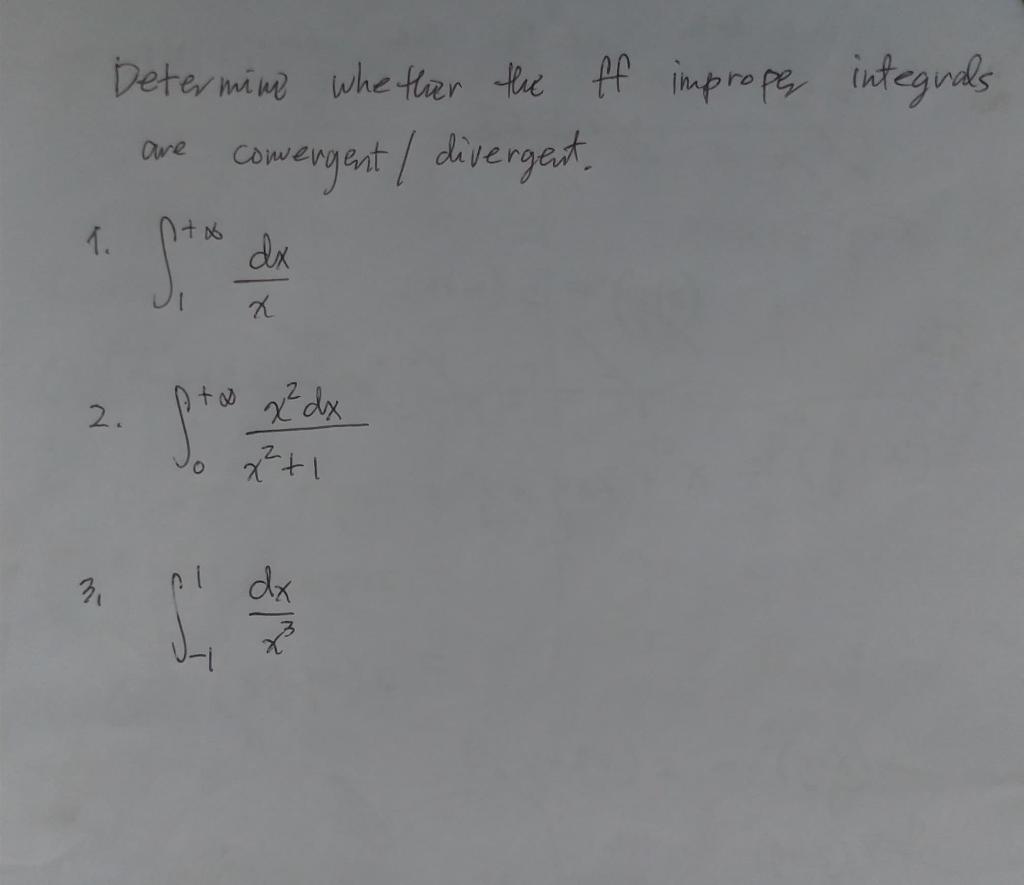 Determine whether the ff improper integrals
are convergent / divergent.
1. ∫₁^{+∞} dx/x
2. ∫₀^{+∞} x²dx/(x²+1)
3. ∫₋₁^{1} dx/x³